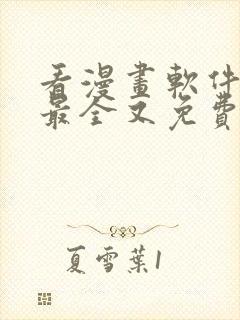 看漫畫軟件
最全又免費
夏雪葉1